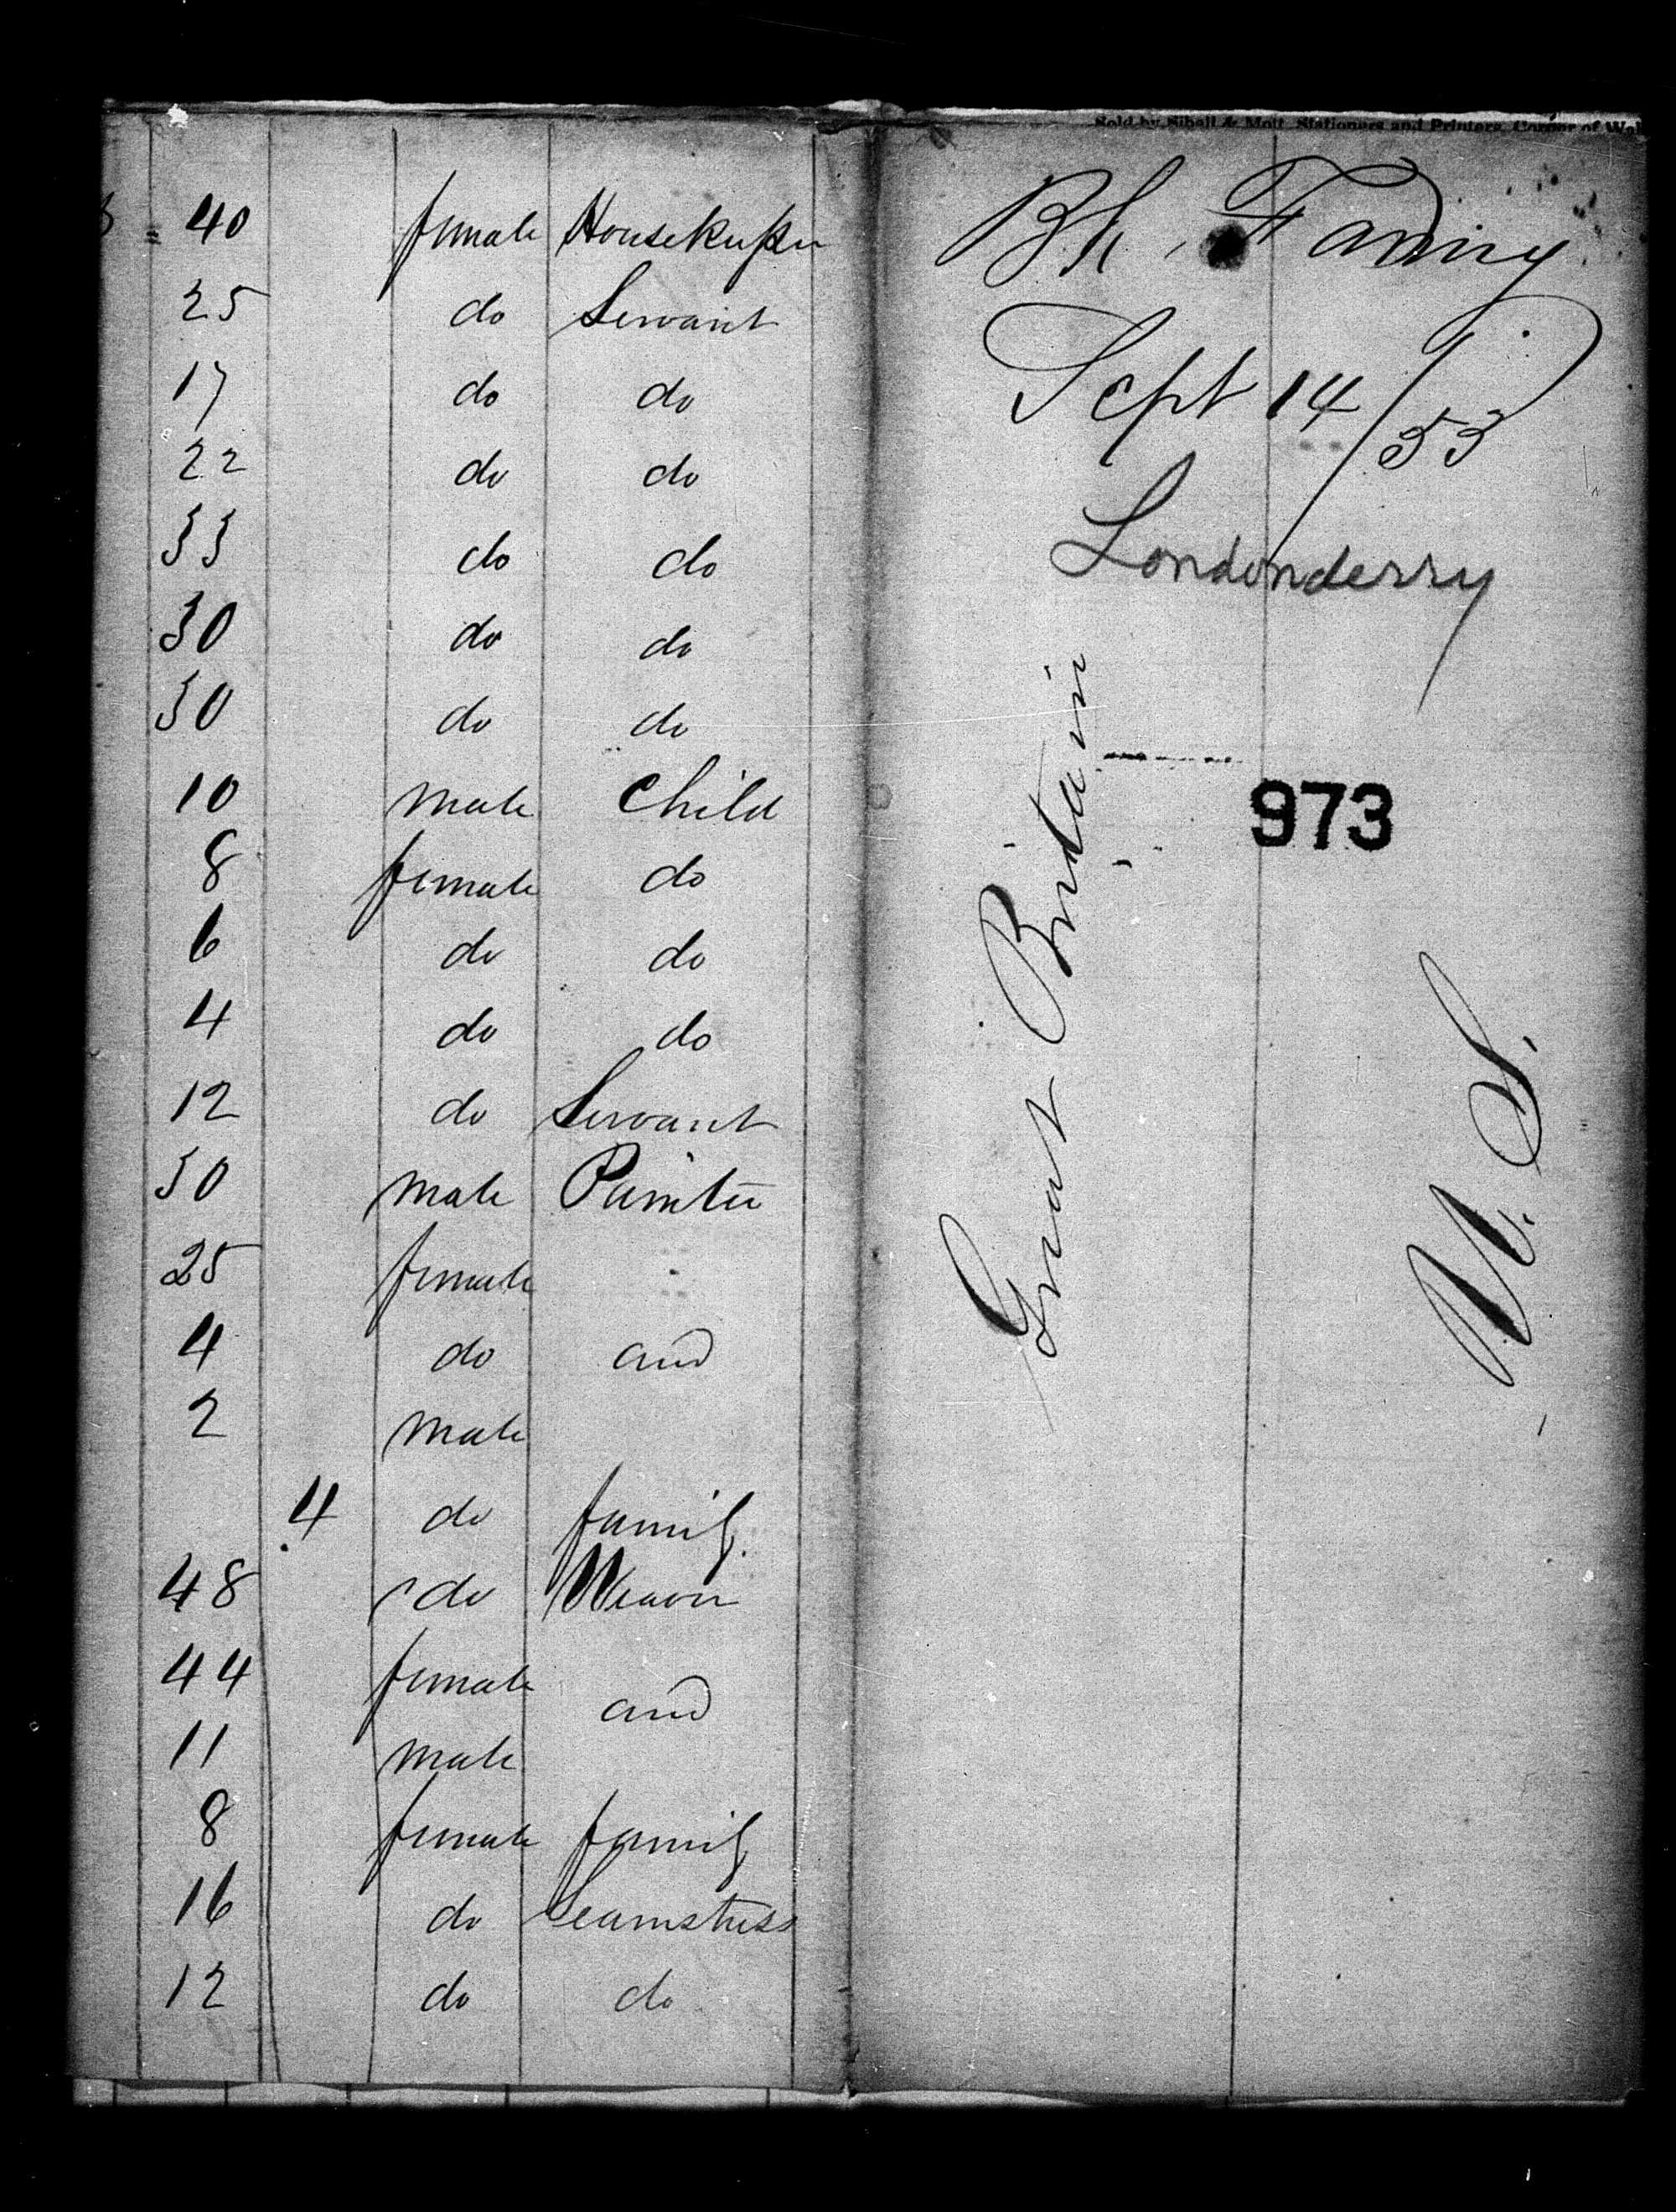 40 female Housekeeper
25 do Servant
17 do do
22 do do
33 do do
30 do do
30 do do
10 male Child
8 female do
6 do do
4 do do
12 do Servant
30 male Painter
25 female
4 do and
2 male
4 do family
48 do Weaver
44 female
and
11 male
8 female family
16 do Seamstress
12 do do
Sold by Sibell & Mott, Stationers and Printers, Corner of Wal
Bk, Fanny
Sept 14/53
Londonderry
973
Great Britain
U. S.